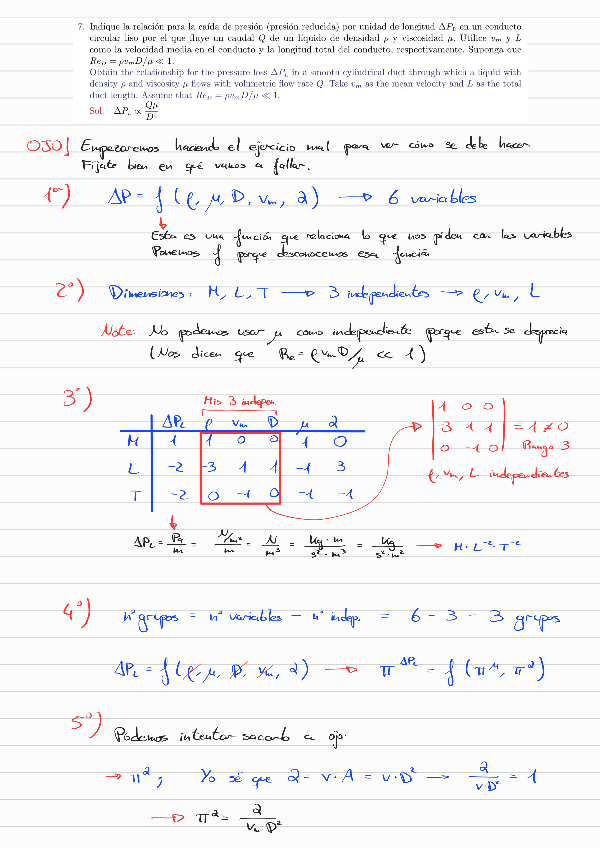 7. Indique la relación para la caída de presión (presión reducida) por unidad de longitud ΔP_L en un conducto
circular liso por el que fluye un caudal Q de un líquido de densidad ρ y viscosidad μ. Utilice v_m y L
como la velocidad media en el conducto y la longitud total del conducto, respectivamente. Suponga que
Re_D = ρv_mD/μ ≪ 1.
Obtain the relationship for the pressure loss ΔP_L in a smooth cylindrical duct through which a liquid with
density ρ and viscosity μ flows with volumetric flow rate Q. Take v_m as the mean velocity and L as the total
duct length. Assume that Re_D = ρv_mD/μ ≪ 1.
Sol. ΔP_L ∝ Qμ/D⁴
OJO! Empezaremos haciendo el ejercicio mal para ver cómo se debe hacer
Fíjate bien en qué vamos a fallar.
1º) ΔP = f (ρ, μ, D, v_m, Q) → 6 variables
Esta es una función que relaciona lo que nos piden con las variables
Ponemos f porque desconocemos esa función
2º) Dimensiones: M, L, T → 3 independientes → ρ, v_m, L
Nota: No podemos usar μ como independiente porque esta se desprecia
(Nos dicen que Re = ρ v_m D/μ << 1)
3º) Mis 3 indepen.
ΔP_L ρ v_m D μ Q
M 1 1 0 0 1 0
L -2 -3 1 1 -1 3
T -2 0 -1 0 -1 -1
|1 0 0|
|3 1 1| = 1 ≠ 0
|0 -1 0| Rango 3
ρ, v_m, L independientes
ΔP_L = Pa/m = N/m²/m = N/m³ = Kg·m/s²·m³ = Kg/s²·m² → M·L⁻²·T⁻²
4º) nº grupos = nº variables - nº indep. = 6 - 3 - 3 grupos
ΔP_L = f (ρ, μ, D, v_m, Q) → π^ΔP_L - f (π^μ, π^Q)
5º) Podemos intentar sacarlo a ojo
→ π^Q; Yo sé que Q - v·A = v·D² → Q/v·D² = 1
→ π^Q = Q/v_m D²